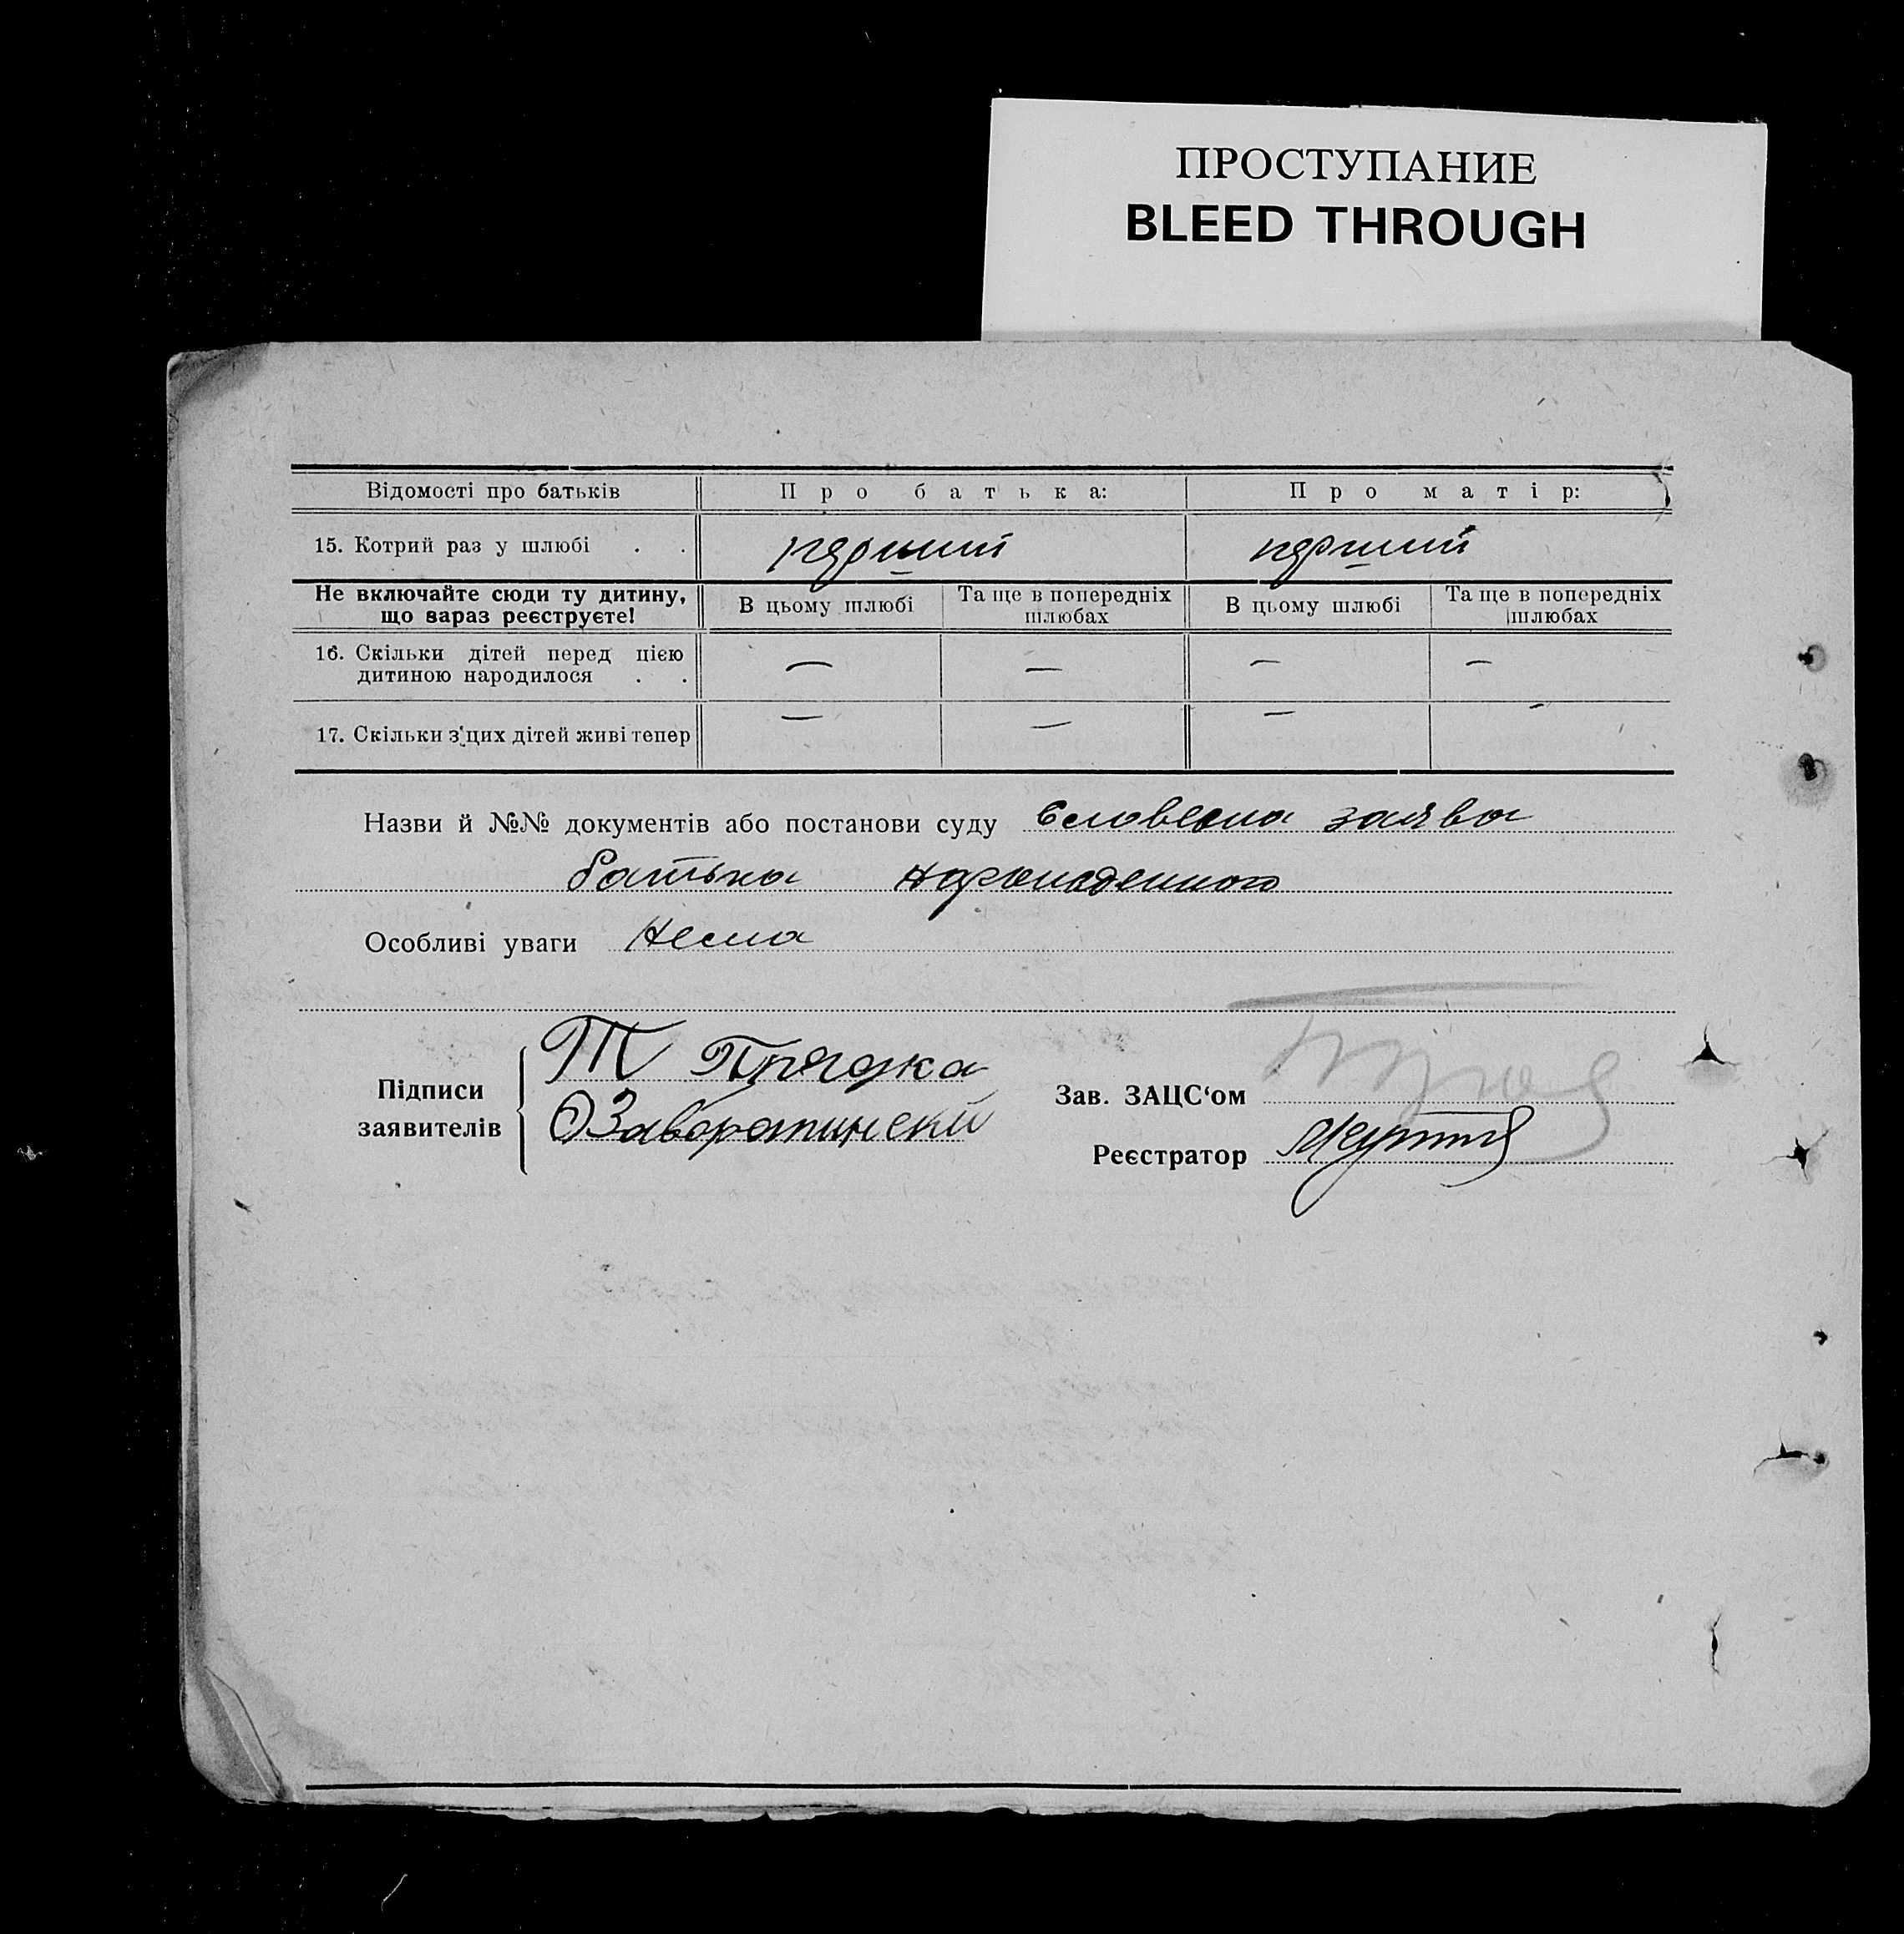 ПРОСТУПАНИЕ
BLEED THROUGH
Відомості про батьків Про батька: Про матір:
15. Котрий раз у шлюбі . . перший перший
Не включайте сюди ту дитину, що зараз реєструєте! В цьому шлюбі Та ще в попередніх шлюбах В цьому шлюбі Та ще в попередніх шлюбах
16. Скільки дітей перед цією
дитиною народилося . . — — — —
17. Скільки з цих дітей живі тепер — — — —
Назви й №№ документів або постанови суду Словесна заява
батька народженного
Особливі уваги Нема
Підписи заявителів
Т Прядка
Заворотинский
Зав. ЗАЦС‘ом
Реєстратор